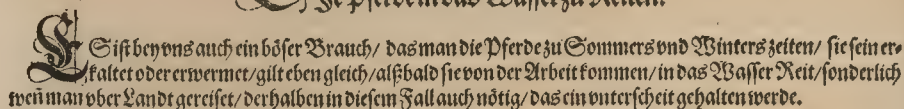 Pferde in das Wasser zu Reiten.
ES ist bey vns auch ein böser Brauch / das man die Pferde zu Sommers vnd Winters zeiten / sie sein er-
kaltet oder erwermet / gilt eben gleich / alßbald sie von der Arbeit kommen / in das Wasser Reit / sonderlich
weñ man vber Landt gereiset / derhalben in diesem Fall auch nötig / das ein vnterscheit gehalten werde.